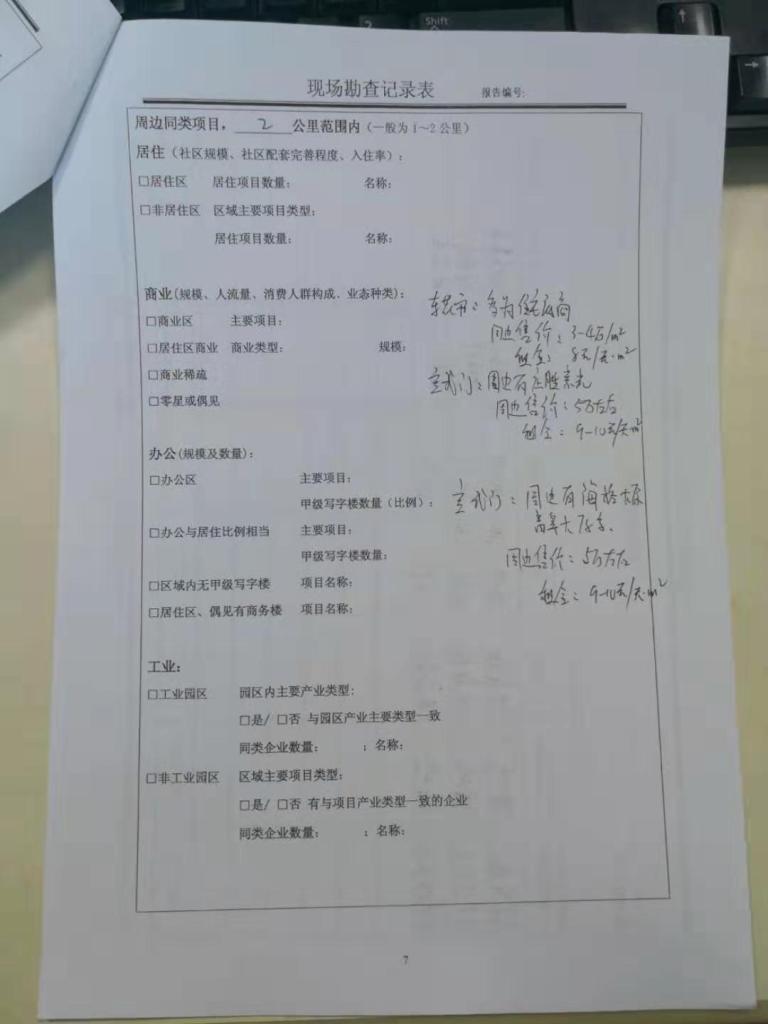 Shift
2
现场勘查记录表 报告编号:
周边同类项目，2公里范围内（一般为1～2公里）
居住（社区规模、社区配套完善程度、入住率）：
□居住区 居住项目数量： 名称：
□非居住区 区域主要项目类型：
居住项目数量： 名称：
商业(规模、人流量、消费人群构成、业态种类)：
多为住宅底商
□商业区 主要项目：
周边售价：3-4万/m²
□居住区商业 商业类型： 规模：
租金：8元/天·m²
□商业稀疏
宣武门：周边有庄胜崇光
□零星或偶见
周边售价：5万左右
租金：9-10元/天m²
办公(规模及数量)：
□办公区 主要项目：
甲级写字楼数量（比例）：
宣武门：周边有海格大厦
□办公与居住比例相当 主要项目：
大厦等.
甲级写字楼数量：
周边售价：5万左右
□区域内无甲级写字楼 项目名称：
租金：9-10元/天·m²
□居住区、偶见有商务楼 项目名称：
工业：
□工业园区 园区内主要产业类型:
□是/ □否 与园区产业主要类型一致
同类企业数量： ；名称：
□非工业园区 区域主要项目类型：
□是/ □否 有与项目产业类型一致的企业
同类企业数量： ；名称：
7